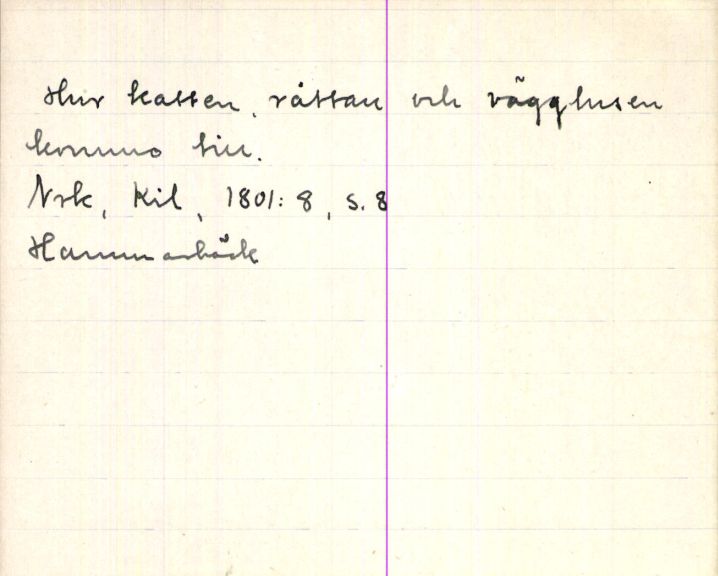 Hur katten, råttan och vägglusen
kommo till.
Nrk, Kil, 1801: 8, s. 8
Hammarbäck